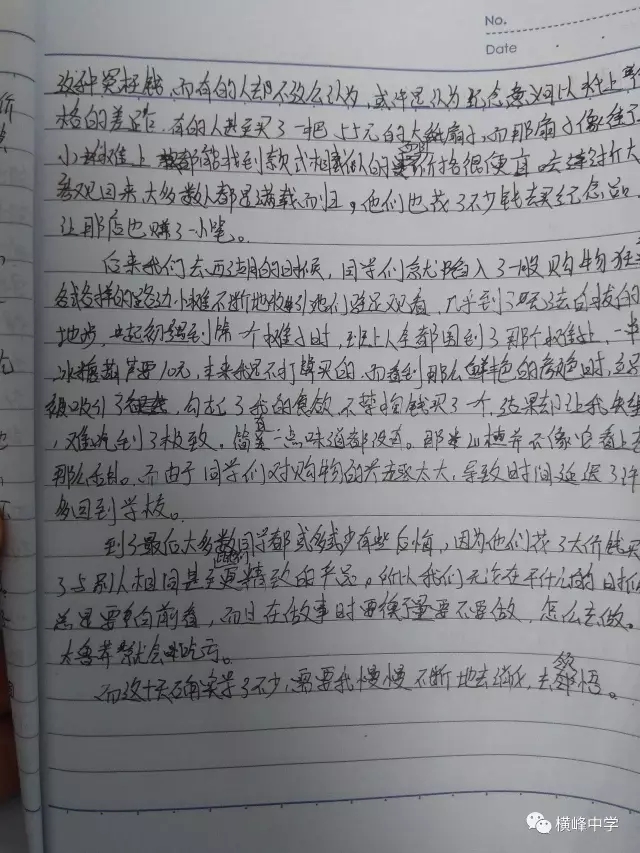 No.
Date
这种冤枉钱,而有的人却不这么认为,或许是认为纪念意义可以补上
格的差距。有的人甚至买了一把55元的大扇子,而那扇子像在
小摊上都能找到款式相似的价格很便宜。
客观回来,大多数人都是满载而归,他们也花了不少钱去买纪念品,
让那店也赚了一小笔。
后来我们去西湖的时候,同学们就陷入了一股购物狂
各式各样的路边小摊不断地吸引他们驻足观看,几乎到了
地步,一起初遇到第一个摊子时,班上人全都围到了那个摊上,一串
冰糖葫芦要10元,本来我是不打算买的,而看到那么鲜艳的颜色时,立马
被吸引了,勾起了我的食欲,不禁掏钱买了一个,结果却让我失望
,难吃到了极致。简直一点味道都没有。那冰糖并不像它看上去
那么。而由于同学们对购物的兴趣太大,导致时间延误了许
多回到学校。
到了最后大多数同学都或多或少有些后悔,因为他们花了大价钱买
了与别人相同甚至更精致的产品,所以我们无论在干什么的时候
总是要向前看,而且在做事时要衡量要不要做,怎么去做。
太鲁莽就会吃亏。
而这十天确实学了不少,需要我慢慢不断地去消化,去领悟。
横峰中学